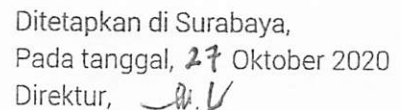 Ditetapkan di Surabaya,
Pada tanggal, 27 Oktober 2020
Direktur,